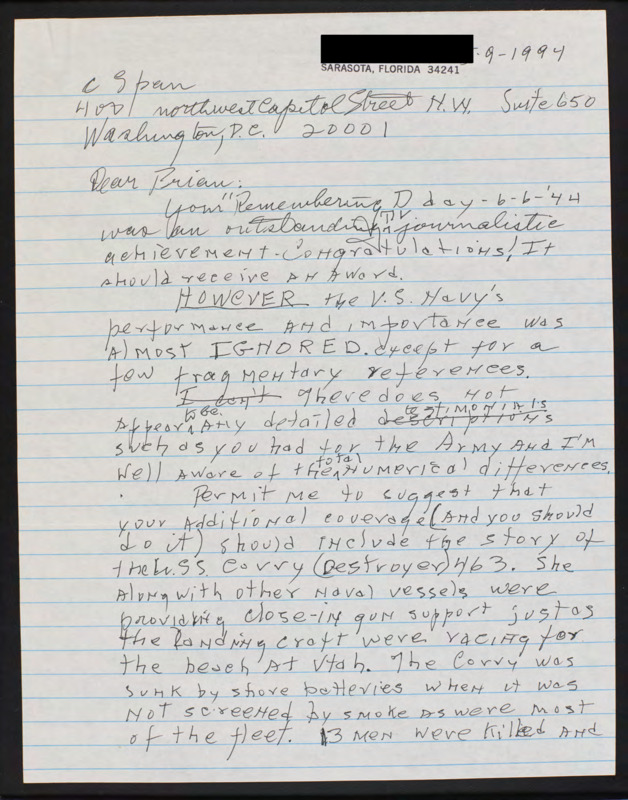 9-1994
SARASOTA, FLORIDA 34241
C Span
400 northwest Capitol Street N.W. Suite 650
Washington, D.C. 20001
Dear Brian:
Your "Remembering D day - 6-6-'44
was an outstanding TV journalistic
achievement - Congratulations! It
should receive an award.
HOWEVER the U.S. Navy's
performance and importance was
almost IGNORED. except for a
few fragmentary references.
I don't There does not
appear to be any detailed descriptions testimonials
such as you had for the Army and I'm
well aware of the total numerical differences.
Permit me to suggest that
your additional coverage (and you should
do it) should include the story of
the U.SS. Corry (Destroyer) 463. She
along with other naval vessels were
providing close-in gun support just as
the landing craft were racing for
the beach at Utah. The Corry was
sunk by shore batteries when it was
not screened by smoke as were most
of the fleet. 13 men were killed and